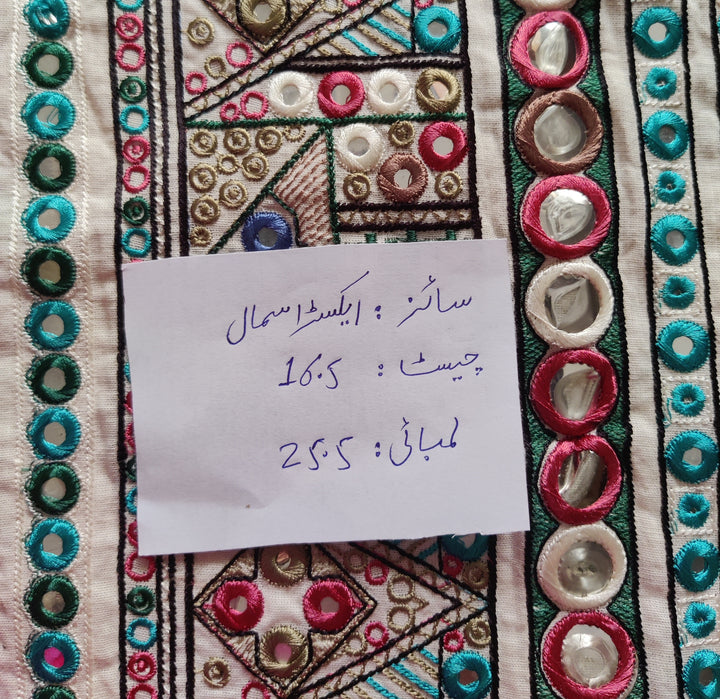 سائز: ایکسڑا سمال
چیسٹ: 16.5
لمبائی: 25.5